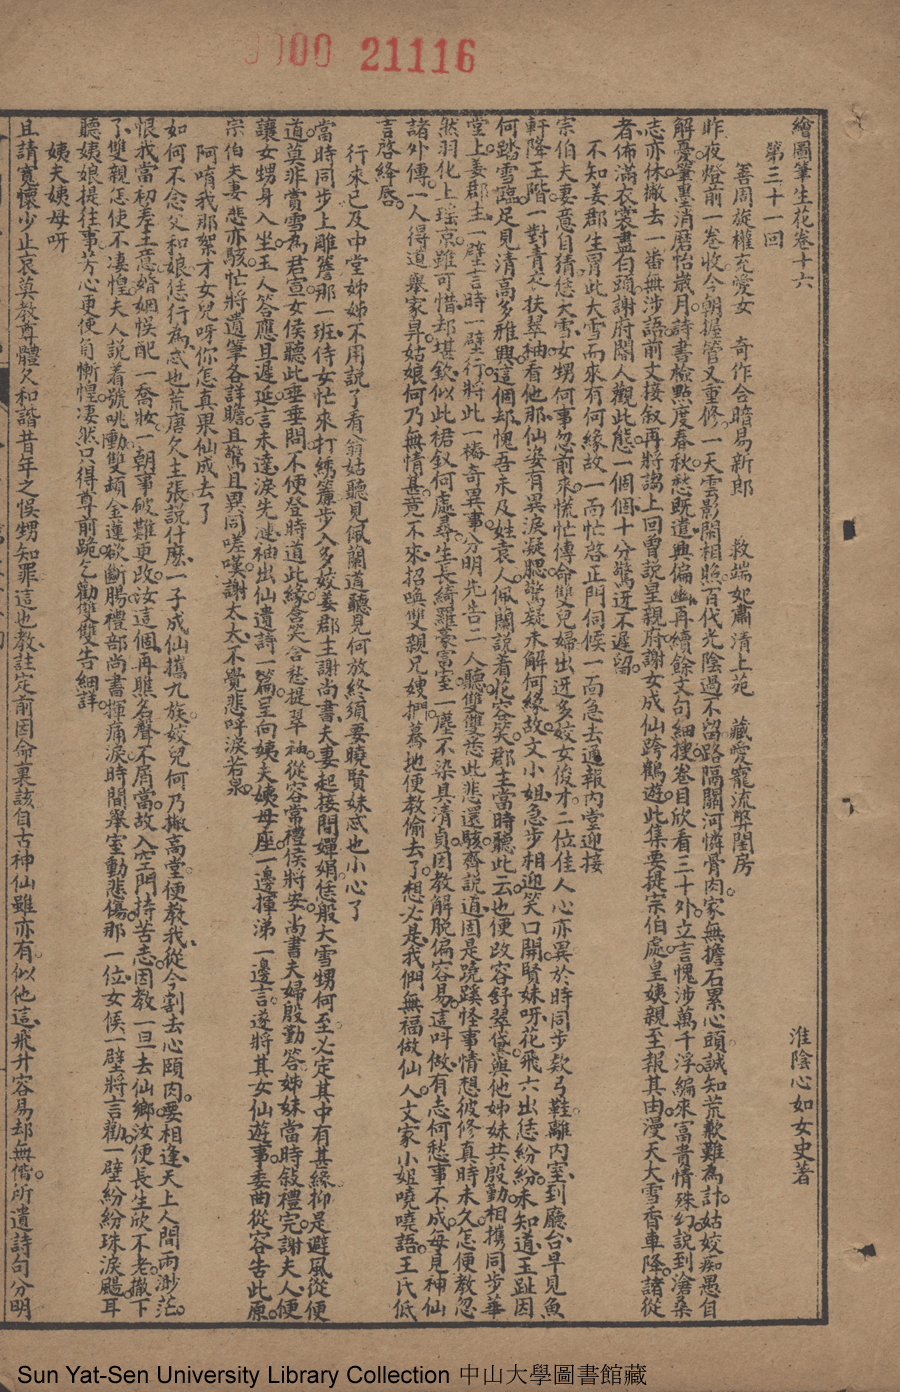 0000 21116
繪圖筆生花卷十六
淮陰心如女史著
第三十一回
善周旋權充愛女 奇作合暗易新郎 救端妃肅清上苑 藏愛寵流弊閨房
昨夜燈前一卷收今朝握管又重修一天雲影閑相照百代光陰過不留路隔關河憐骨肉家無擔石累心頭誠知荒歉難為計姑姣痴愚自
解憂筆墨消磨怡歲月詩書檢點度春秋愁既遣興偏幽再續餘文句細搜卷目欣看三十外立言愧涉萬千浮編來富貴情殊幻說到滄桑
志亦休撇去一番無涉語前文接叙再將謅上回曾說皇親府謝女成仙跨鶴遊此集要提宗伯處皇姨親至報其由漫天大雪香車降諸從
者佈滿衣裳盡白頭謝府閽人觀此態一個個十分驚迓不遲留
不知姜郡生冒此大雪而來有何緣故一面忙啓正門伺候一面急去通報內堂迎接
宗伯夫妻意自猜恁大雪女甥何事忽前來慌忙傳命雙兒婦出迓多姣女俊才二位佳人心亦異於時同步欵弓鞋離內室到廳台早見魚
軒降玉階一對青衣扶翠袖看他那仙姿有異淚凝腮驚疑未解何緣故文小姐急步相迎笑口開賢妹呀花飛六出恁紛紛未知道玉趾因
何踏雪臨足見清高多雅興這個却愧吾未及姓袁人佩蘭說着花容笑郡主當時聽此云也便改容舒翠黛與他姊妹共殷勤相携同步華
堂上姜郡主一壁言時一壁行將此一樁奇異事分明先告二人聽雙雙惹此悲還駭齊說道因是蹺蹊怪事情想彼修真時未久怎便教忽
然羽化上瑤京雖可惜却堪欽似此裙釵何處尋生長綺羅豪富室一塵不染具清貞因教解脫偏容易這叫做有志何愁事不成每見神仙
諸外傳一人得道舉家昇姑娘何乃無情甚竟不來招喚雙親兄嫂們驀地便教偷去了想必是我們無福做仙人文家小姐嘵嘵語王氏低
言啓絳唇
行來已及中堂姊姊不用說了看翁姑聽見佩蘭道聽見何放終須要曉賢妹忒也小心了
當時同步上雕簷那一班侍女忙來打綉簾步入多姣姜郡主謝尚書夫妻起接間嬋娟恁般大雪甥何至必定其中有甚緣抑是避風從便
道莫非賞雪為君宣女侯聽此垂垂問不便登時道此緣含笑含愁提翠袖從容常禮侯將安尚書夫婦殷勤答姊妹當時敍禮完謝夫人便
讓女甥身入坐玉人答應且遲延言未達淚先漣袖出仙遺詩一篇呈向姨夫姨母座一邊揮涕一邊言遂將其女仙遊事委曲從容告此原
宗伯夫妻悲亦駭忙將遺筆各詳瞻且驚且異同嗟嘆謝太太不覺悲呼淚若泉
阿唷我那絮才女兒呀你怎真果仙成去了
如何不念父和娘恁行為忒也荒唐久主張說什麽一子成仙攜九族姣兒何乃撇高堂便教我從今割去心頤肉要相逢天上人間兩渺茫
恨我當初差主意婚姻悞配一喬妝一朝事破難更改汝這個再醮名聲不屑當故入空門持苦志因教一旦去仙鄉汝便長生欣不老撤下
了雙親怎使不凄惶夫人說着號咷慟雙頰金蓮欲斷腸禮部尚書揮痛淚時間舉室動悲傷那一位女侯一壁將言勸一壁紛紛珠淚颺耳
聽姨娘提往事芳心更使自慚惶凄然只得尊前跪乞勸雙雙告細詳
姨夫姨母呀
且請寬懷少止哀莫教尊體久和諧昔年之悞甥知罪這也教註定前因命裏該自古神仙雖亦有似他這飛升容易却無偕所遺詩句分明
Sun Yat-Sen University Library Collection 中山大學圖書館藏